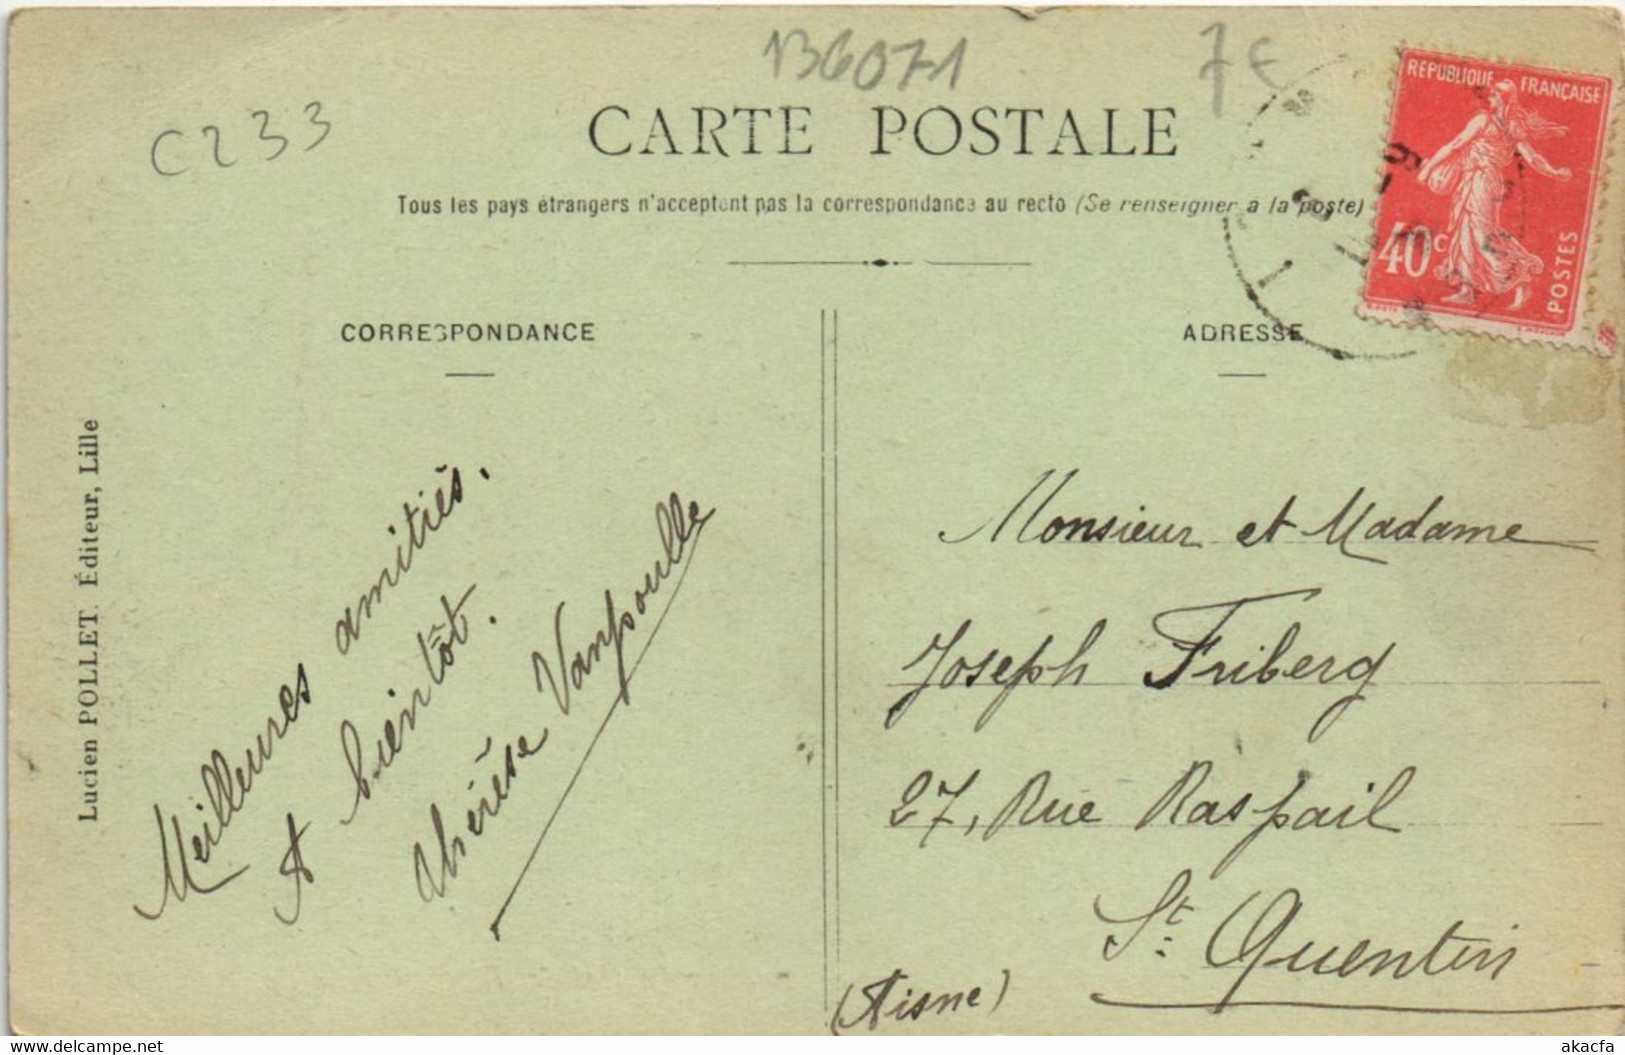 136071
7€
C233
CARTE POSTALE
Tous les pays étrangers n'acceptent pas la correspondance au recto (Se renseigner a la poste)
REPUBLIQUE FRANÇAISE
40c
POSTES
CORRESPONDANCE
ADRESSE
Lucien POLLET. Éditeur, Lille
Meilleures amitiés.
A bientôt.
Thérèse Vanpoulle
Monsieur et Madame
Joseph Friberg
27, Rue Raspail
St. Quentin
(Aisne)
delcampe.net
akacfa